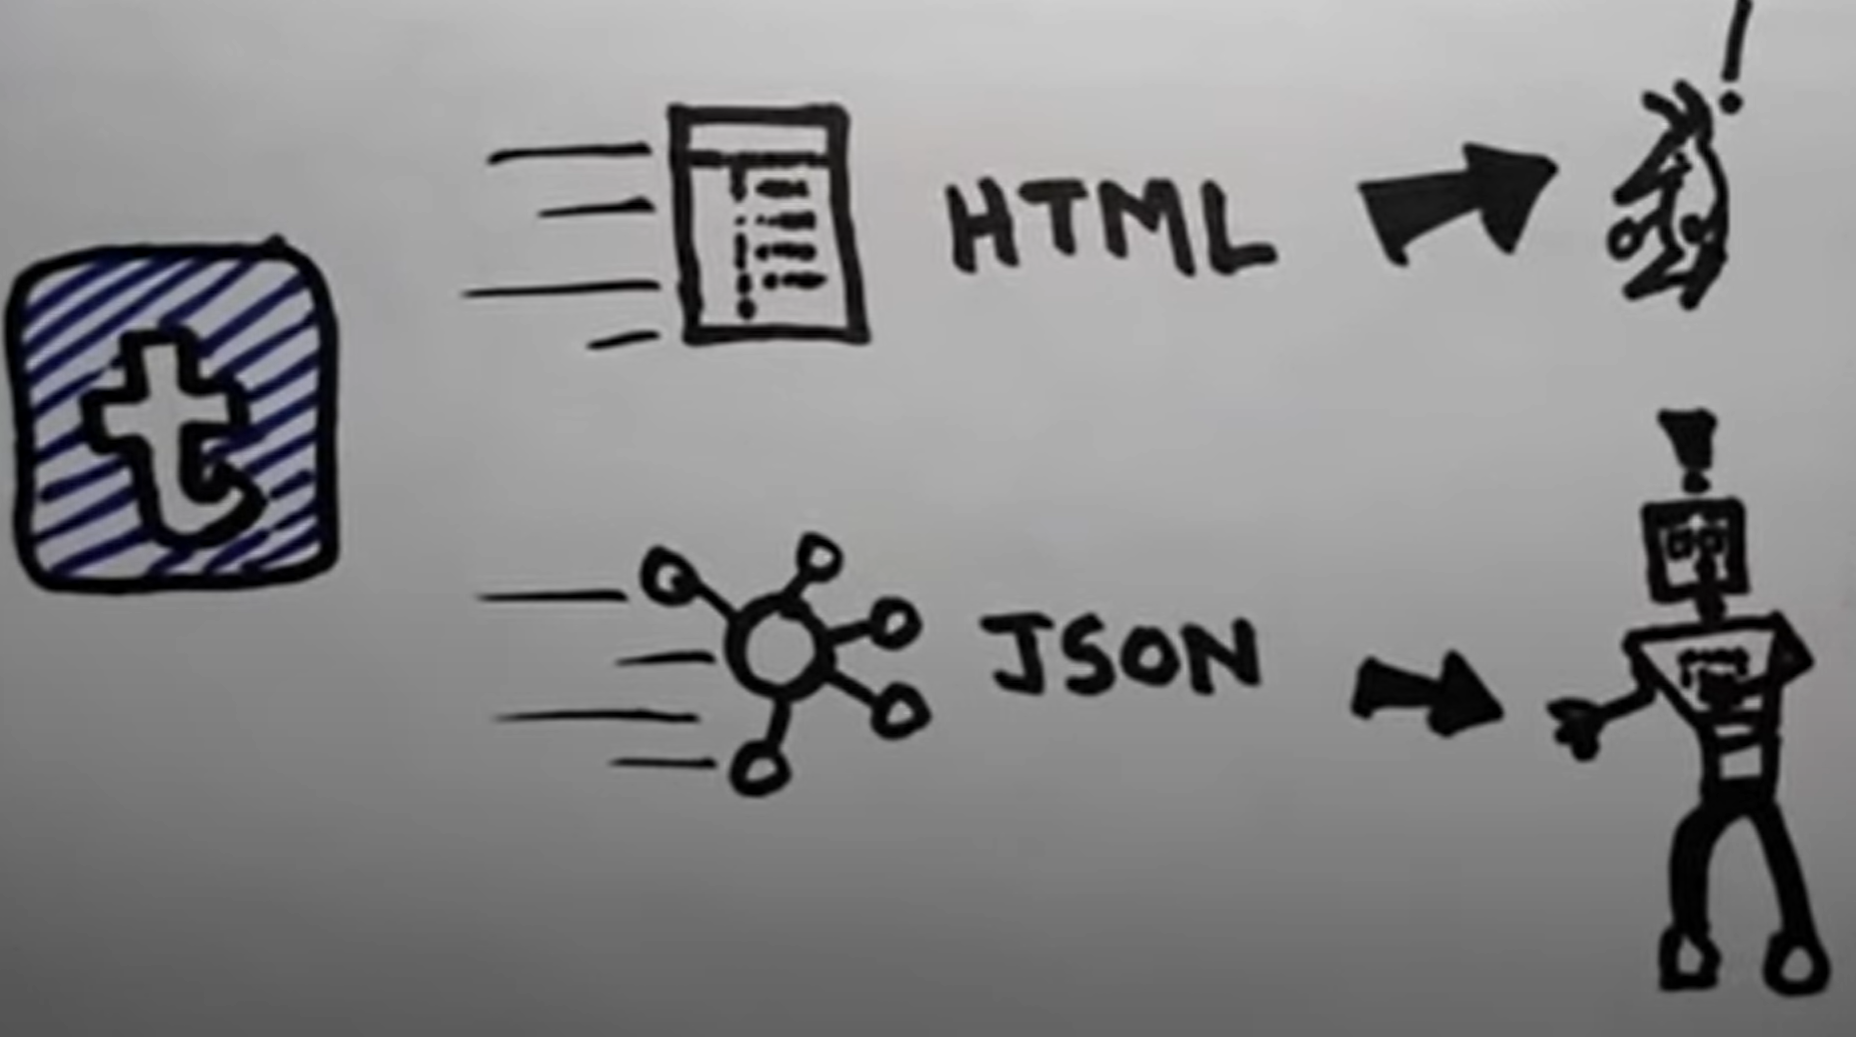 t
HTML
JSON